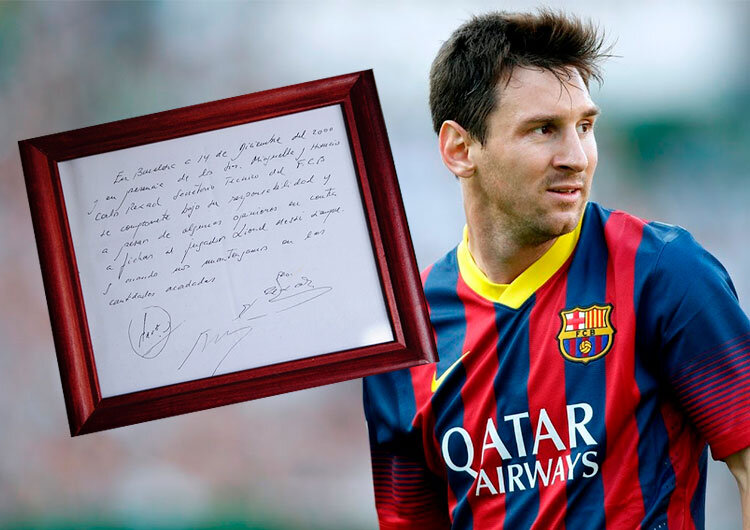 En Barcelona a 14 de Diciembre del 2000
y en presencia de los Srs. Minguella y Horacio
Carlos Rexach Secretario Tecnico del F.C.B
se compromete bajo su responsabilidad y
a pesar de algunas opiniones en contra
a fichar al jugador Lionel Messi siempre
y cuando nos mantengamos en las
cantidades acordadas
FCB
QATAR
AIRWAYS